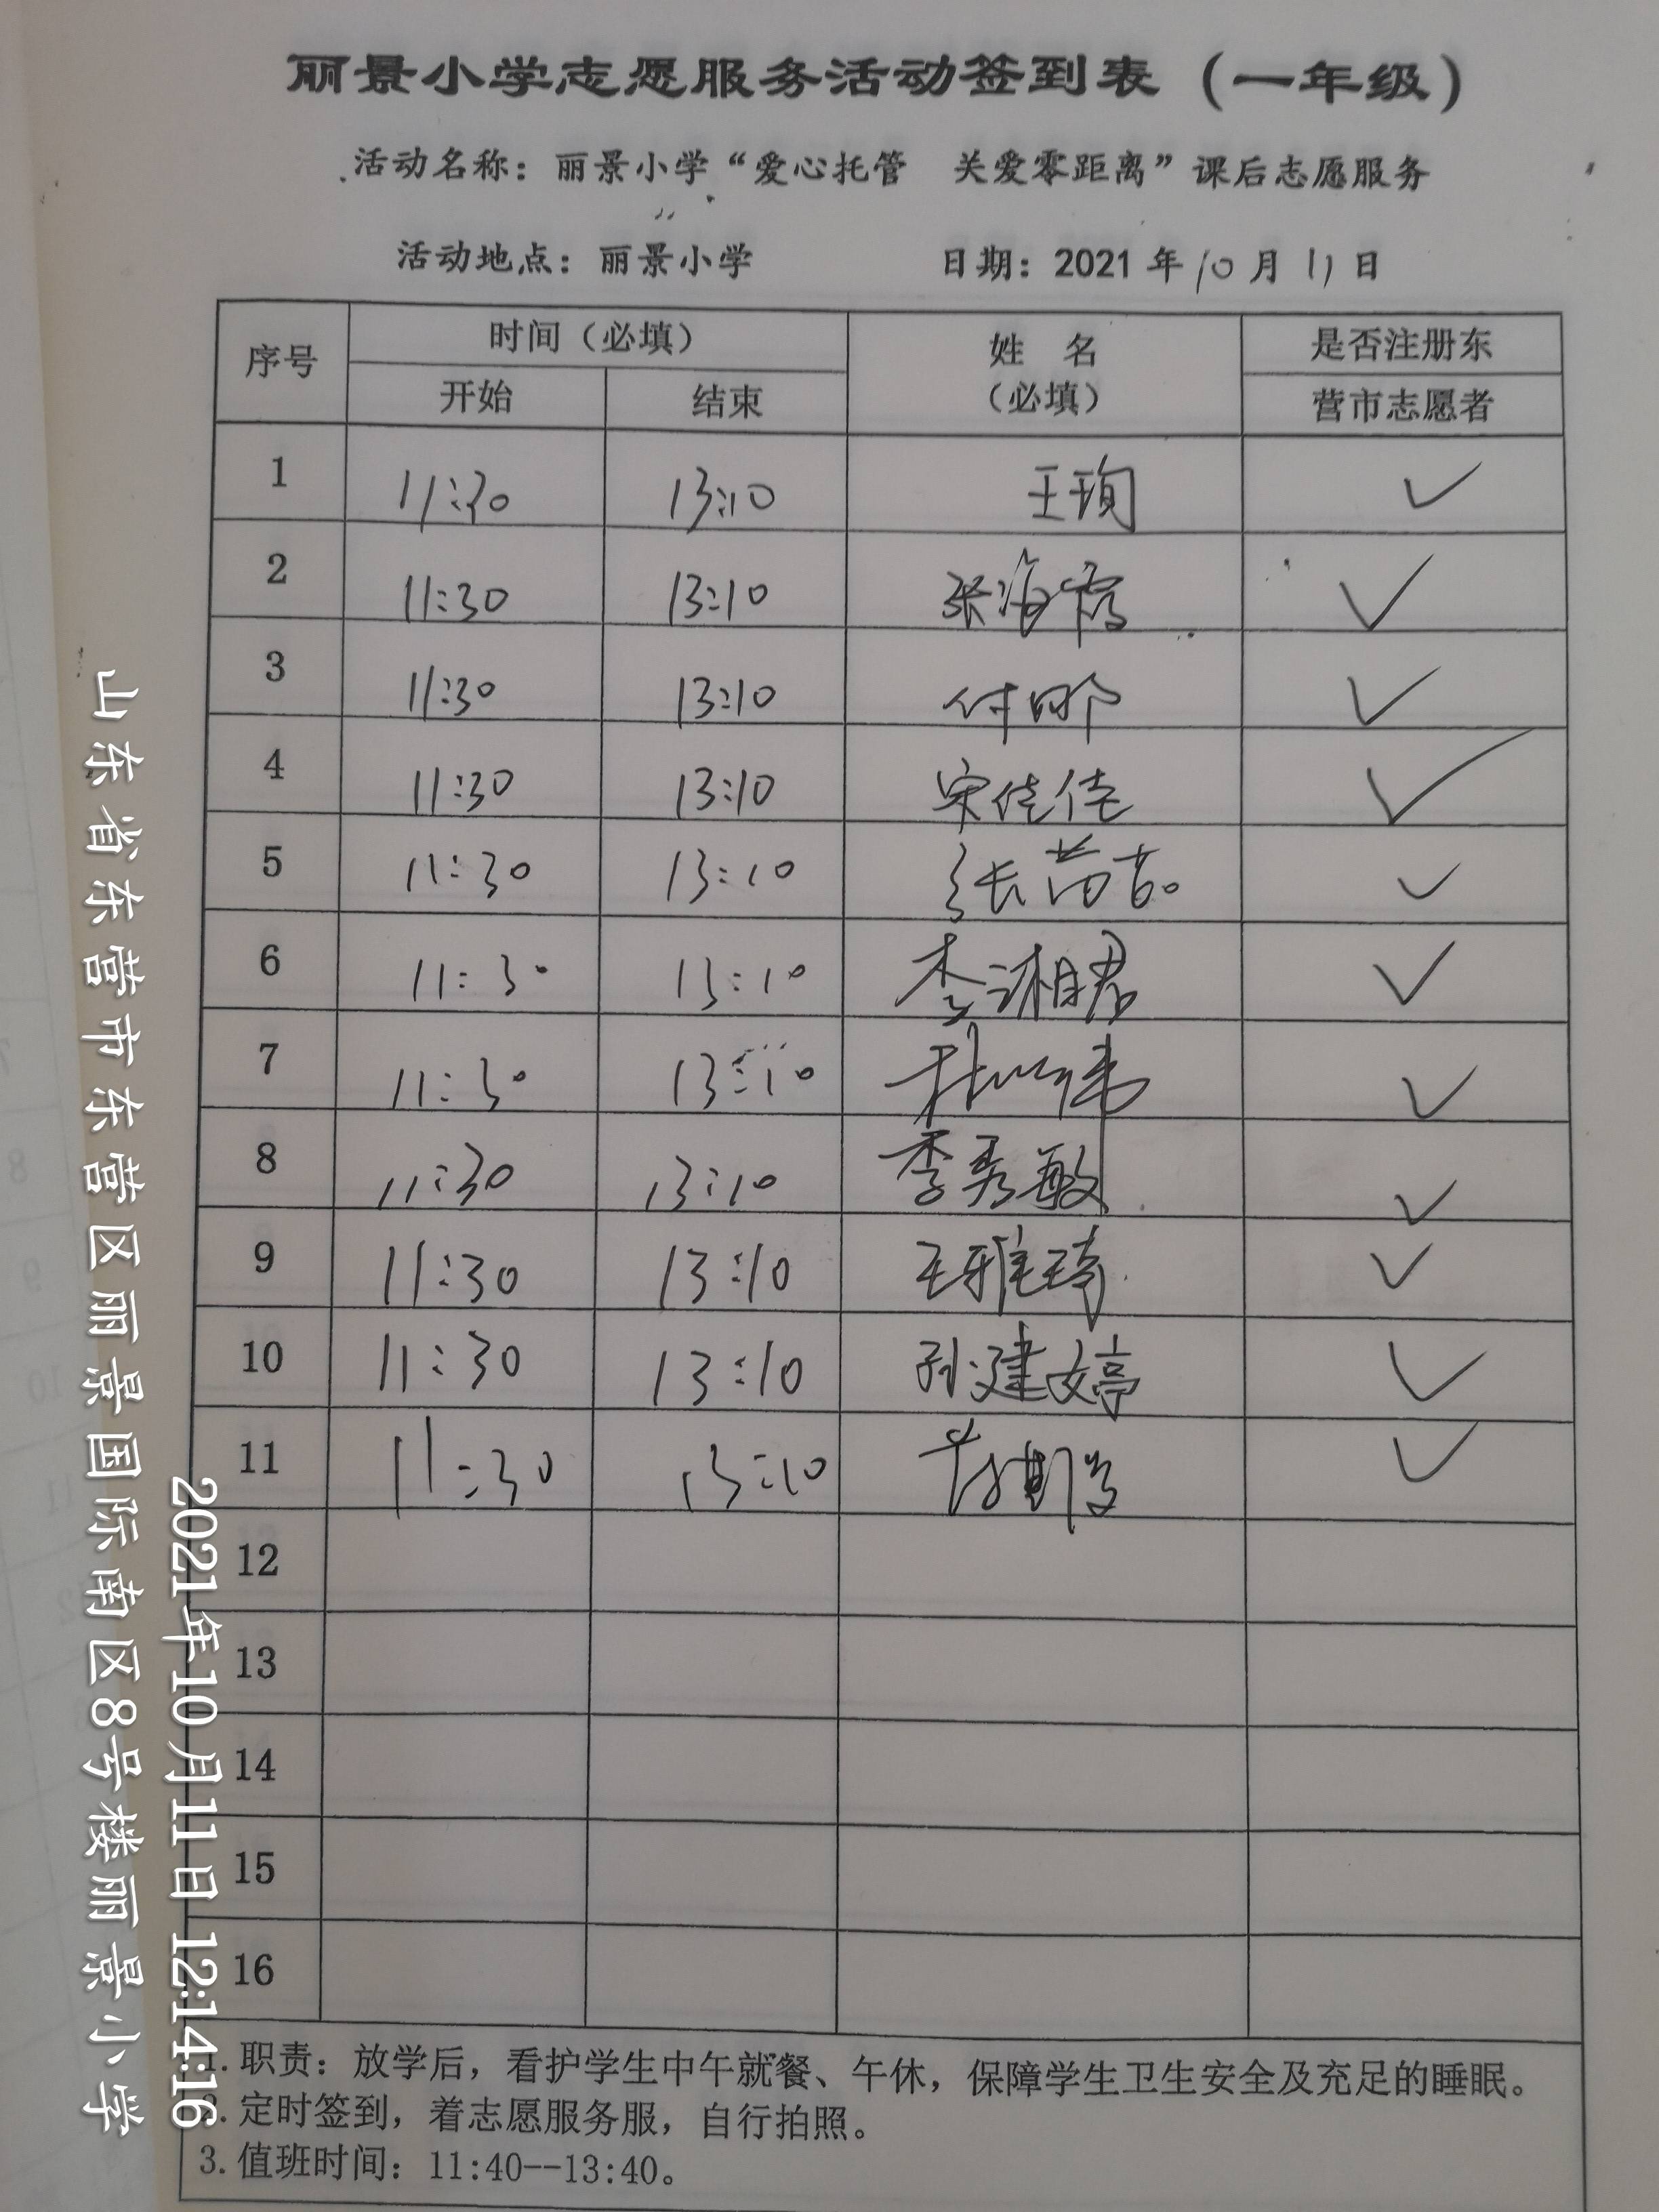 丽景小学志愿服务活动签到表（一年级）
活动名称：丽景小学“爱心托管　关爱零距离”课后志愿服务
活动地点：丽景小学　日期：2021年10月11日
序号　时间（必填）　姓　名　是否注册东
开始　结束　（必填）　营市志愿者
1　11:30　13:10　王珣　✓
2　11:30　13:10　张海　✓
3　11:30　13:10　付　✓
4　11:30　13:10　宋佳佳　✓
5　11:30　13:10　张苗苗　✓
6　11:30　13:10　李湘君　✓
7　11:30　13:10　✓
8　11:30　13:10　李秀敏　✓
9　11:30　13:10　王雅琦　✓
10　11:30　13:10　孙建婷　✓
11　11:30　13:10　✓
12
13
14
15
16
1.职责：放学后，看护学生中午就餐、午休，保障学生卫生安全及充足的睡眠。
2.定时签到，着志愿服务服，自行拍照。
3.值班时间：11:40--13:40。
2021年10月11日 12:14:16
山东省东营市东营区丽景国际南区8号楼丽景小学